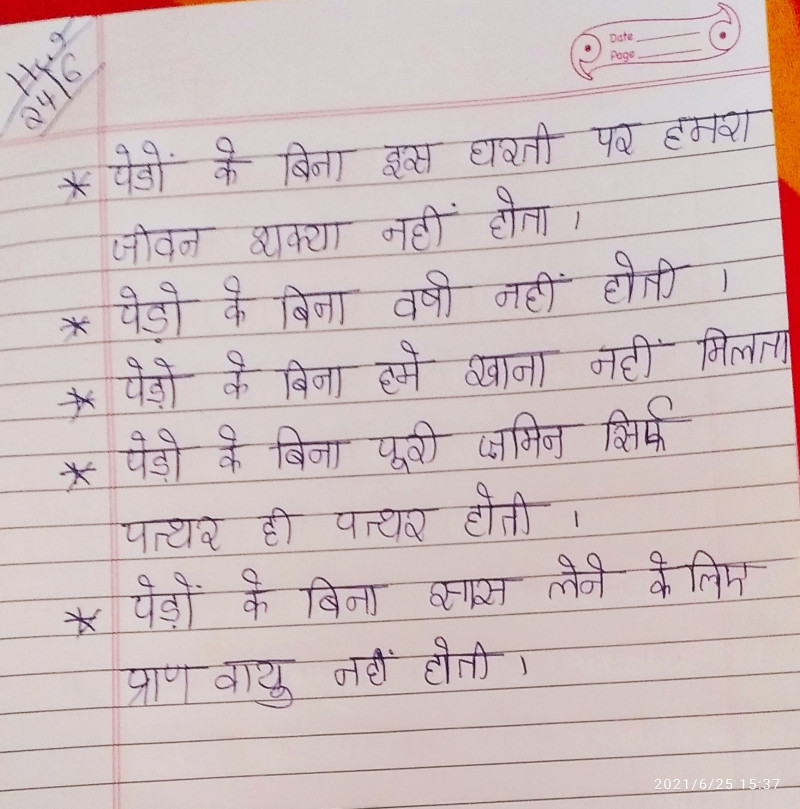 H.W
24/6
Date
Page
* पेडों के बिना इस धरती पर हमरा
जीवन शक्या नहीं होता ।
* पेड़ो के बिना वर्षा नहीं होती ।
* पेड़ो के बिना हमे खाना नहीं मिलता
* पेड़ो के बिना पूरी जमिन सिर्फ
पत्थर ही पत्थर होती ।
* पेड़ों के बिना सास लेने के लिए
प्राण वायु नहीं होती ।
2021/6/25 15:37